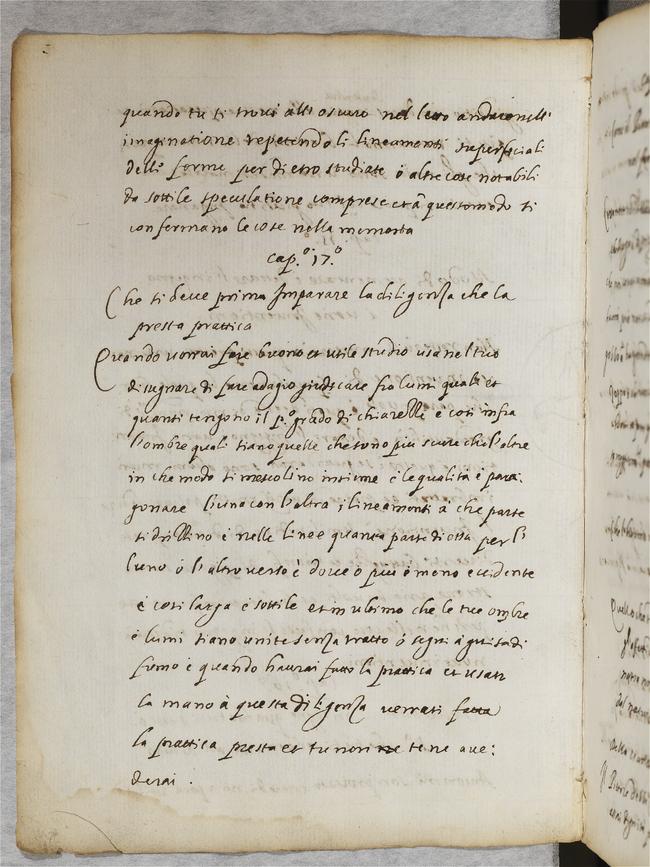 quando tu ti trovi all'oscuro nel letto andare nell'
imaginatione repetendo li lineamenti superficiali
delle forme per dietro studiate ò altre cose notabili
da sottile speculatione comprese et à questo modo si
confermano le cose nella memoria
cap.º 17.º
Che si deve prima Imparare la diligenza che la
presta prattica
Quando vorrai fare buono et utile studio usa nel tuo
disegnare di fare adagio giudicare fra lumi quali et
quanti tengono il p.º grado di chiarezze è così infra
l'ombre quali siano quelle che sono più scure che l'altre
in che modo si mescolino insieme è le qualità è para:
gonare l'una con l'altra, i lineamenti à che parte
si drizzino è nelle linee quanta parte di essa per l'
luno ò l'altro verso è dove ò più ò meno evidente
è così larga è sottile et in ultimo che le tue ombre
è lumi siano unite senza tratto ò segni à guisa di
fumo è quando haurai fatto la prattica et usato
la mano à questa diligenza verrati fatta
la prattica presta et tu non te ne ave:
derai .